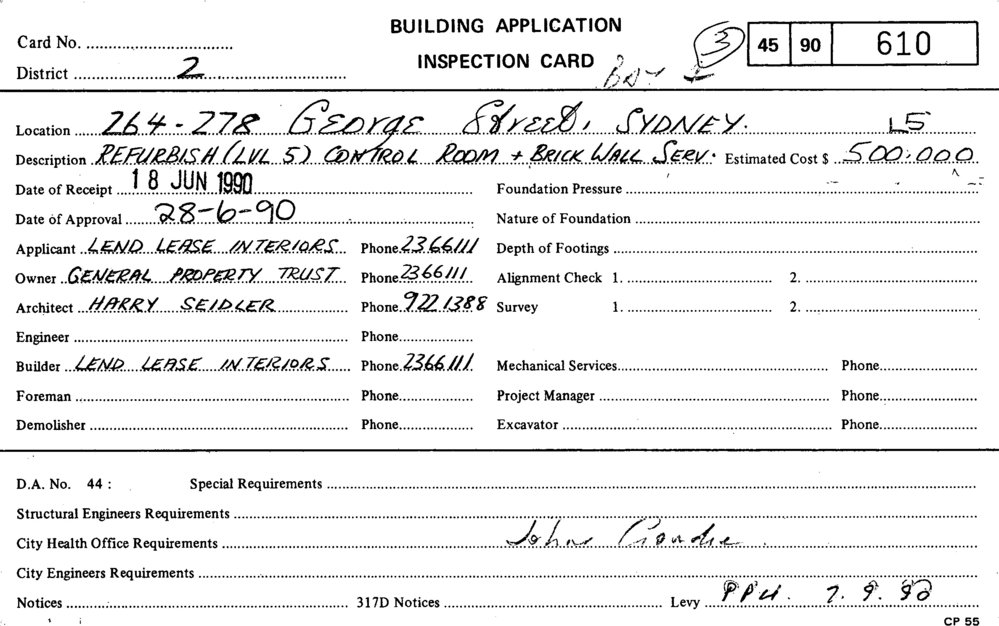 BUILDING APPLICATION
INSPECTION CARD
Card No.
District 2
3 45 90 610
Location 264-278 GEORGE STREET, SYDNEY. L5
Description REFURBISH (LVL 5) CONTROL ROOM + BRICK WALL SERV. Estimated Cost $ 500.000
Date of Receipt 18 JUN 1990 Foundation Pressure
Date of Approval 28-6-90 Nature of Foundation
Applicant LEND LEASE INTERIORS Phone 2366111 Depth of Footings
Owner GENERAL PROPERTY TRUST Phone 2366111 Alignment Check 1. 2.
Architect HARRY SEIDLER Phone 922 1388 Survey 1. 2.
Engineer Phone
Builder LEND LEASE INTERIORS Phone 2366111 Mechanical Services Phone
Foreman Phone Project Manager Phone
Demolisher Phone Excavator Phone
D.A. No. 44 : Special Requirements
Structural Engineers Requirements
City Health Office Requirements John
City Engineers Requirements
Notices 317D Notices Levy 7.9.90
CP 55